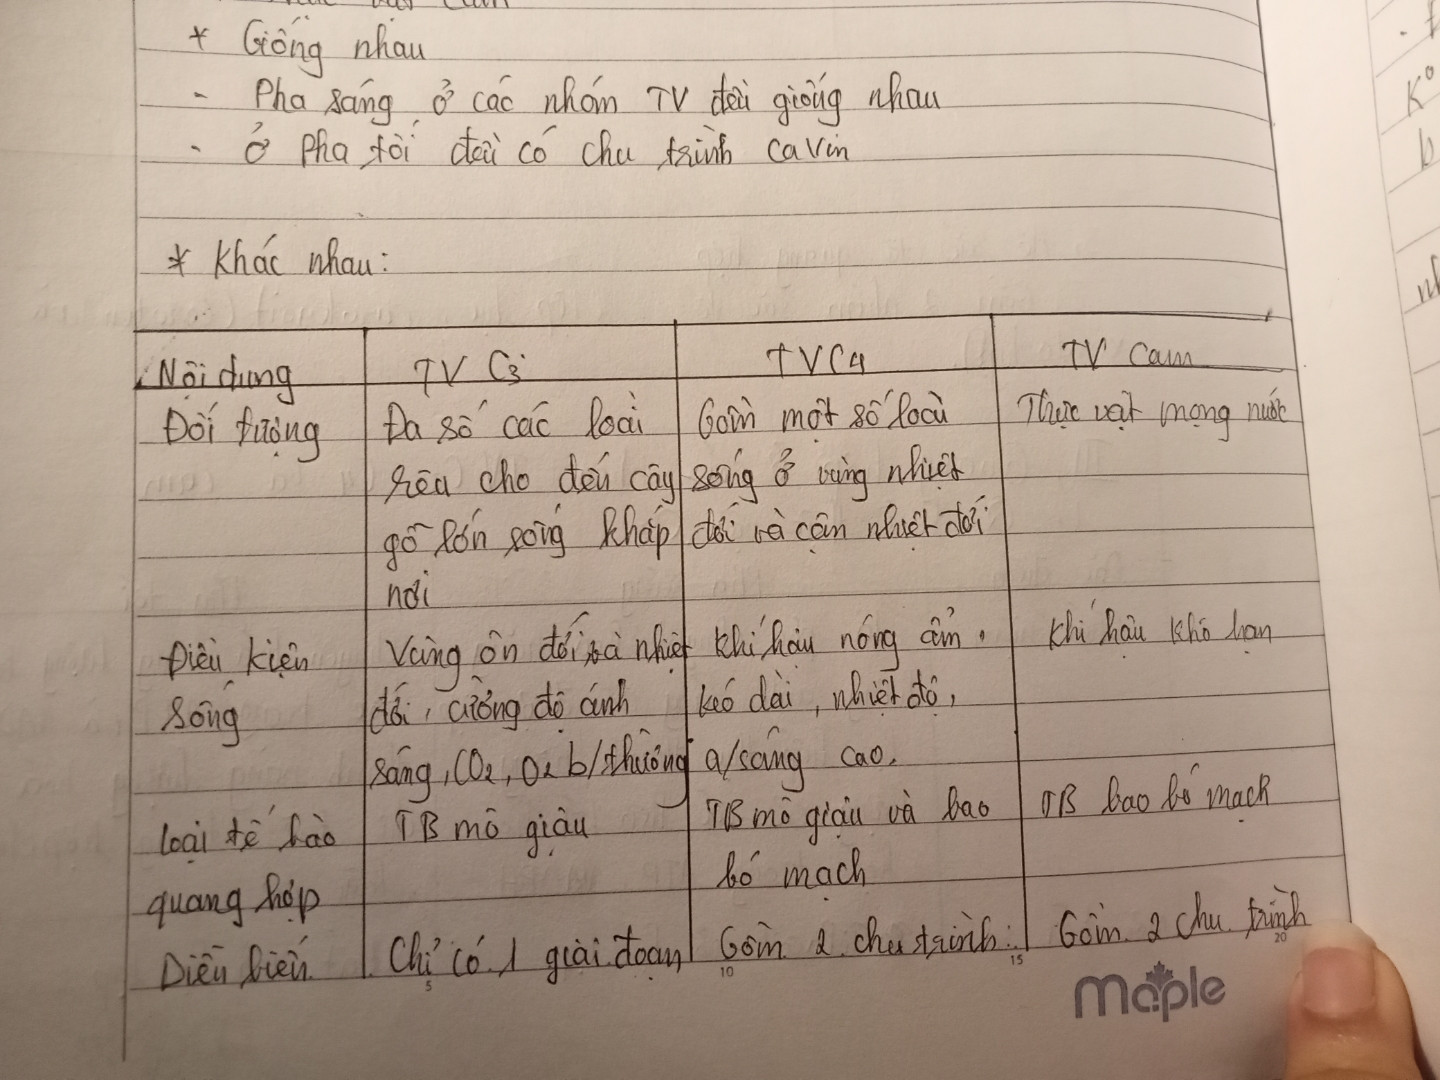 * Giống nhau
- Pha sáng ở các nhóm TV đều giống nhau
- ở pha tối đều có chu trình cavin
* Khác nhau:
Nội dung TV C3 TVC4 TV Cam
Đối tượng Đa số các loài Gồm một số loài Thực vật mọng nước
rêu cho đến cây sống ở vùng nhiệt
gỗ lớn sống khắp đới và cận nhiệt đới
nơi
Điều kiện Vùng ôn đới và nhiệt khí hậu nóng ẩm, khí hậu khô hạn
sống đới, cường độ ánh kéo dài, nhiệt độ,
sáng, CO2, O2 b/thường a/sáng cao.
loại tế bào TB mô giậu TB mô giậu và bao TB bao bó mạch
quang hợp bó mạch
Diễn biến Chỉ có 1 giai đoạn Gồm 2 chu trình: Gồm 2 chu trình
5 10 15 20
maple